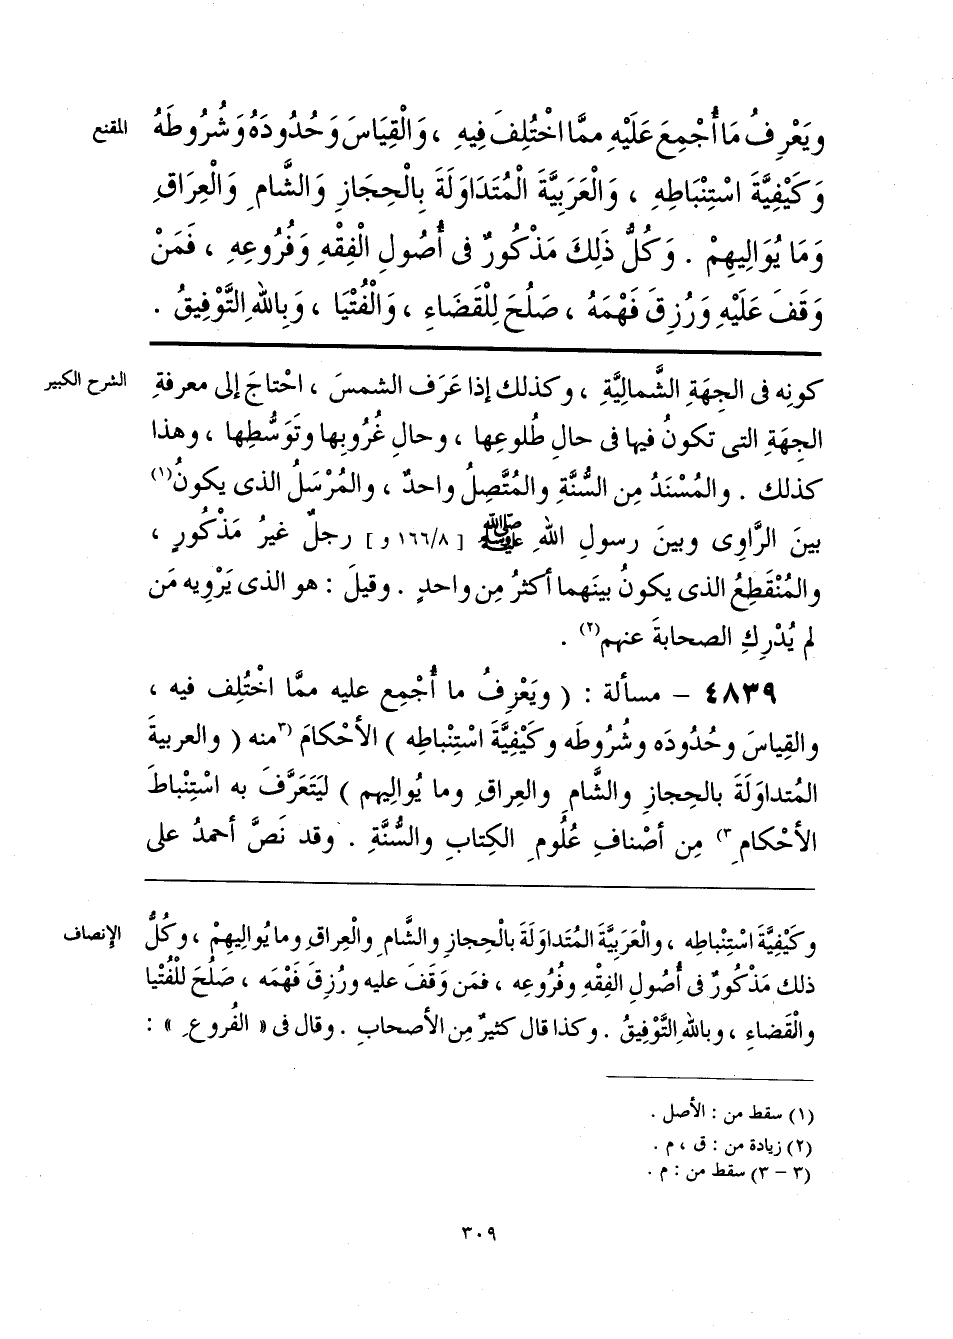 المقنع
ويَعْرِفُ مَا أُجْمِعَ عَلَيْهِ ممَّا اخْتُلِفَ فِيهِ ، وَالْقِيَاسَ وَحُدُودَهُ وَشُرُوطَهُ
وَكَيْفِيَّةَ اسْتِنْبَاطِهِ ، وَالْعَرَبِيَّةَ الْمُتَدَاوَلَةَ بِالْحِجَازِ وَالشَّامِ وَالْعِرَاقِ
وَمَا يُوَالِيهِمْ . وَكُلُّ ذَلِكَ مَذْكُورٌ فى أُصُولِ الْفِقْهِ وَفُرُوعِهِ ، فَمَنْ
وَقَفَ عَلَيْهِ وَرُزِقَ فَهْمَهُ ، صَلُحَ لِلْقَضَاءِ ، وَالْفُتْيَا ، وَبِاللهِ التَّوْفِيقُ .
الشرح الكبير
كونِه فى الجِهَةِ الشَّمالِيَّةِ ، وكذلك إذا عَرَف الشمسَ ، احْتاجَ إلى معرفةِ
الجِهَةِ التى تكونُ فيها فى حالِ طُلوعِها ، وحالِ غُرُوبِها وتَوَسُّطِها ، وهذا
كذلك . والمُسْنَدُ مِن السُّنَّةِ والمُتَّصِلُ واحدٌ ، والمُرْسَلُ الذى يكونُ(١)
بينَ الرَّاوِى وبينَ رسولِ اللهِ ﷺ [ ١٦٦/٨ و ] رجلٌ غيرُ مَذْكُورٍ ،
والمُنْقَطِعُ الذى يكونُ بينَهما أكثرُ مِن واحدٍ . وقيلَ : هو الذى يَرْوِيه مَن
لم يُدْرِكِ الصحابةَ عنهم(٢) .
٤٨٣٩ – مسألة : ( ويَعْرِفُ ما أُجْمِع عليه ممَّا اخْتُلِف فيه ،
والقِياسَ وحُدُودَه وشُرُوطَه وكَيْفِيَّةَ اسْتِنْباطِه ) الأحْكامَ (٣منه ( والعربيةَ
المُتداوَلَةَ بالحِجازِ والشَّامِ والعِراقِ وما يُوالِيهم ) ليَتَعَرَّفَ به اسْتِنْباطَ
الأحْكامِ ٣) مِن أصْنافِ عُلُومِ الكِتابِ والسُّنَّةِ . وقد نَصَّ أحمدُ على
الإنصاف
وكَيْفِيَّةَ اسْتِنْباطِه ، والْعَرَبِيَّةَ المُتَداوَلَةَ بالْحِجازِ والشَّامِ والْعِراقِ وما يُوالِيهِمْ ، وكُلُّ
ذلك مَذْكُورٌ فى أُصُولِ الفِقْهِ وفُرُوعِه ، فمَن وَقَفَ عليه ورُزِقَ فَهْمَه ، صَلُحَ للْفُتْيا
والْقَضاءِ ، وباللهِ التَّوْفِيقُ . وكذا قال كثيرٌ مِن الأصحابِ . وقال فى « الفُروعِ » :
(١) سقط من : الأصل .
(٢) زيادة من : ق ، م .
(٣ – ٣) سقط من : م .
٣٠٩